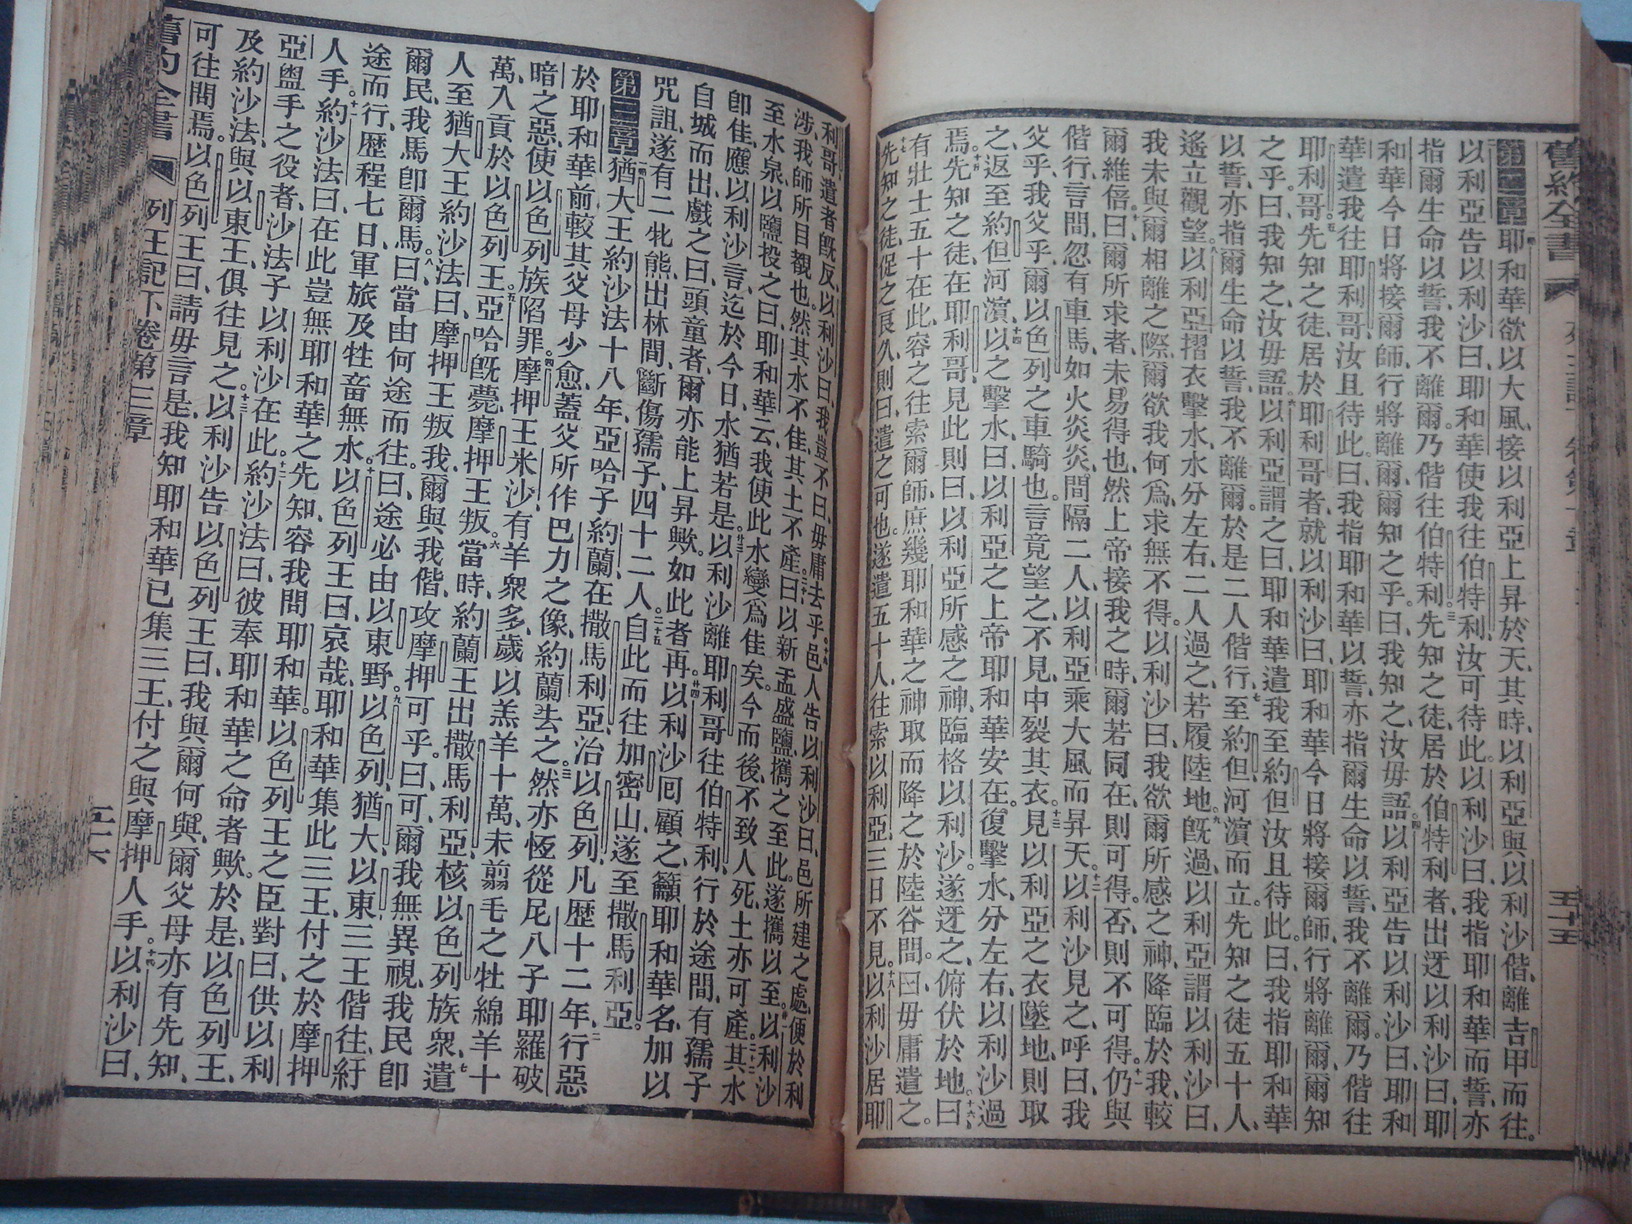 舊約全書
五十五
第二章耶和華欲以大風、接以利亞上昇於天、其時、以利亞與以利沙偕、離吉甲而往。
以利亞告以利沙曰、耶和華使我往伯特利、汝可待此。以利沙曰、我指耶和華而誓、亦
指爾生命以誓、我不離爾。乃偕往伯特利。三先知之徒、居於伯特利者、出迓以利沙曰、耶
和華今日將接爾師、行將離爾、爾知之乎。曰、我知之、汝毋語。四以利亞告以利沙曰、耶和
華遣我往耶利哥、汝且待此。曰、我指耶和華以誓、亦指爾生命以誓、我不離爾。乃偕往
耶利哥。五先知之徒、居於耶利哥者、就以利沙曰、耶和華今日將接爾師、行將離爾、爾知
之乎。曰、我知之、汝毋語。六以利亞謂之曰、耶和華遣我至約但、汝且待此。曰、我指耶和華
以誓、亦指爾生命以誓、我不離爾。於是二人偕行。七至約但河濱而立、先知之徒五十人、
遙立觀望。八以利亞摺衣擊水、水分左右、二人過之、若履陸地。九旣過、以利亞謂以利沙曰、
我未與爾相離之際、爾欲我何爲、求無不得。以利沙曰、我欲爾所感之神、降臨於我、較
爾維倍。十曰、爾所求者、未易得也、然上帝接我之時、爾若同在、則可得、否則不可得。十一仍與
偕行、言間、忽有車馬、如火炎炎、間隔二人、以利亞乘大風而昇天。十二以利沙見之、呼曰、我
父乎、我父乎、爾以色列之車騎也、言竟、望之不見、中裂其衣。十三見以利亞之衣墜地、則取
之、返至約但河濱。十四以之擊水、曰、以利亞之上帝耶和華安在、復擊水分左右、以利沙過
焉。十五先知之徒、在耶利哥、見此則曰、以利亞所感之神、臨格以利沙。遂迓之、俯伏於地。十六曰、
有壯士五十在此、容之往索爾師、庶幾耶和華之神、取而降之於陵谷間。曰、毋庸遣之。
十七先知之徒、促之良久、則曰、遣之可也。遂遣五十人、往索以利亞、三日不見。十八以利沙居耶
利哥、遣者旣反、以利沙曰、我豈不曰、毋庸去乎。十九邑人告以利沙曰、邑所建之處、便於利
涉、我師所目覩也、然其水不佳、其土不產。二十曰、以新盂盛鹽、攜之至此。遂攜以至。廿一以利沙
至水泉、以鹽投之曰、耶和華云、我使此水變爲佳矣。今而後、不致人死、土亦可產。二十二其水
卽佳、應以利沙言、迄於今日、水猶若是。廿三以利沙離耶利哥、往伯特利、行於途間、有孺子
自城而出、戲之曰、頭童者、爾亦能上昇歟、如此者再。廿四以利沙囘顧之、籲耶和華名、加以
咒詛、遂有二牝熊、出林間、斷傷孺子四十二人。二十五自此而往加密山、遂至撒馬利亞。
第三章猶大王約沙法十八年、亞哈子約蘭、在撒馬利亞、治以色列、凡歷十二年。二行惡
於耶和華前、較其父母少愈、蓋父所作巴力之像、約蘭去之。三然亦恆從尼八子耶羅破
暗之惡、使以色列族陷罪。四摩押王米沙、有羊衆多、歲以羔羊十萬、未翦毛之牡綿羊十
萬、入貢於以色列王。五亞哈旣薨、摩押王叛。六當時、約蘭王出撒馬利亞、核以色列族衆。七遣
人至猶大王約沙法曰、摩押王叛我、爾與我偕攻摩押可乎。曰、可、爾我無異視、我民卽
爾民、我馬卽爾馬。八曰、當由何途而往。曰、途必由以東野。九以色列、猶大、以東三王偕往、紆
途而行、歷程七日、軍旅及牲畜無水。十以色列王曰、哀哉、耶和華集此三王、付之於摩押
人手。十一約沙法曰、在此豈無耶和華之先知、容我問耶和華。以色列王之臣對曰、供以利
亞盥手之役者、沙法子以利沙在此。十二約沙法曰、彼奉耶和華之命者歟。於是以色列王、
及約沙法、與以東王、俱往見之。十三以利沙告以色列王曰、我與爾何與、爾父母亦有先知、
可往問焉。以色列王曰、請毋言是、我知耶和華已集三王、付之與摩押人手。十四以利沙曰、
舊約全書
列王記下卷第三章
五十六